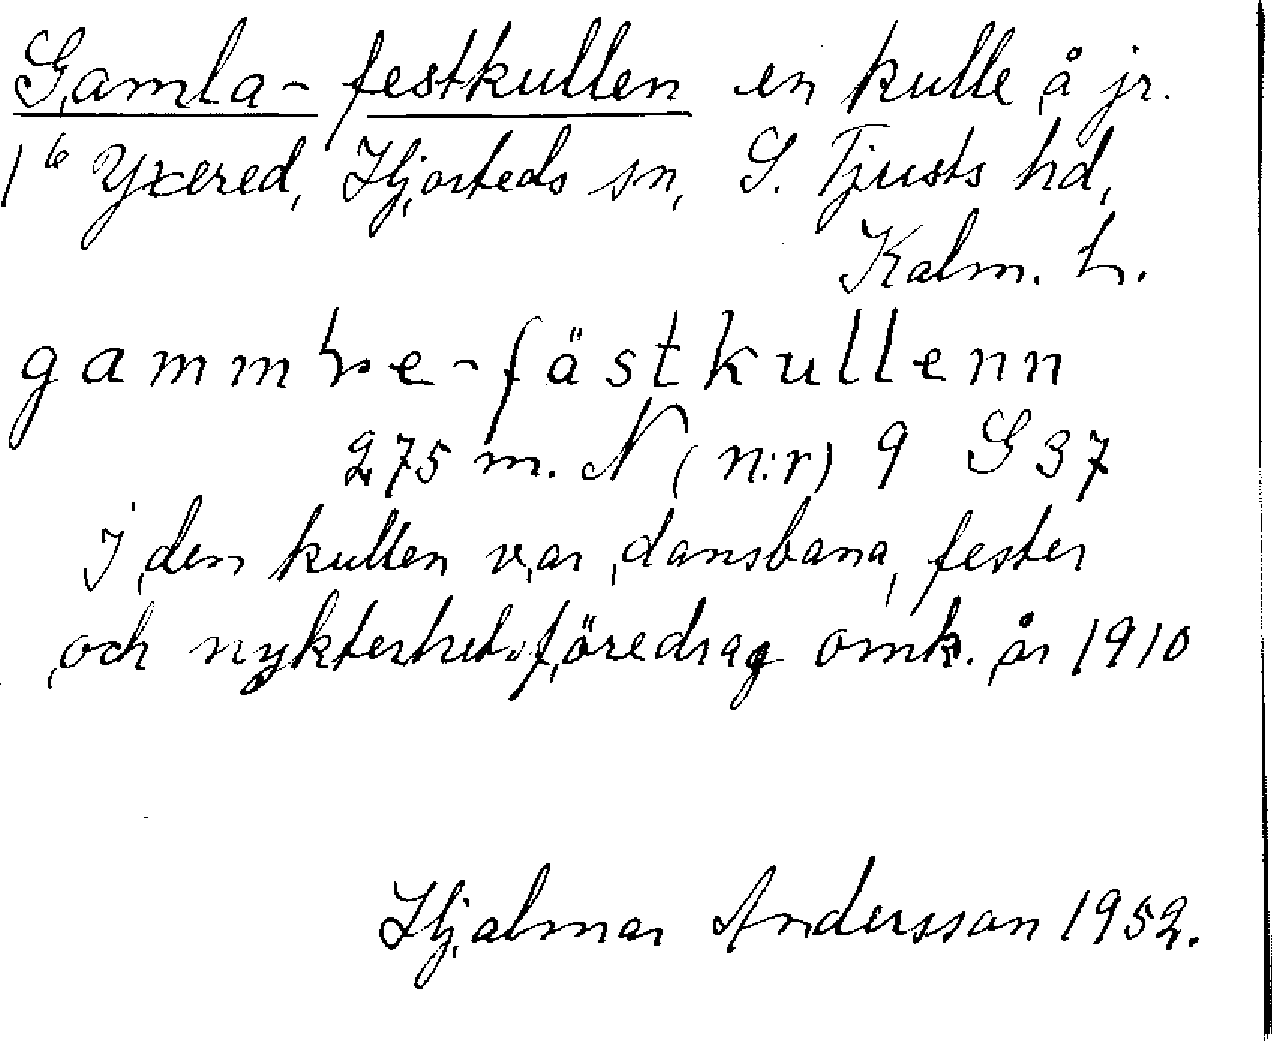 Gamla-festkullen en kulle å jr.
1⁶ Yxered, Hjorteds sn, S. Tjusts hd,
Kalm. L.
-fästkullenn
275 m. N (n:r) 9 S 37
I den kullen var dansbana, fester
och nykterhetsföredrag omk. år 1910
Hjalmar Andersson 1952.